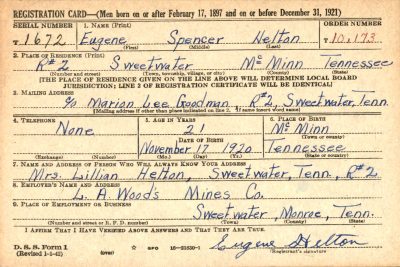 REGISTRATION CARD—(Men born on or after February 17, 1897 and on or before December 31, 1921)
SERIAL NUMBER 1. NAME (Print) ORDER NUMBER
T 1672 Eugene Spencer Helton T 10,173
(First) (Middle) (Last)
2. PLACE OF RESIDENCE (Print)
R#2 Sweetwater McMinn Tennessee
(Number and street) (Town, township, village, or city) (County) (State)
[THE PLACE OF RESIDENCE GIVEN ON THE LINE ABOVE WILL DETERMINE LOCAL BOARD
JURISDICTION; LINE 2 OF REGISTRATION CERTIFICATE WILL BE IDENTICAL]
3. MAILING ADDRESS
c/o Marion Lee Goodman R#2, Sweetwater, Tenn.
[Mailing address if other than place indicated on line 2. If same insert word same]
4. TELEPHONE 5. AGE IN YEARS 6. PLACE OF BIRTH
None 21 McMinn
DATE OF BIRTH (Town or county)
November 17 1920 Tennessee
(Exchange) (Number) (Mo.) (Day) (Yr.) (State or country)
7. NAME AND ADDRESS OF PERSON WHO WILL ALWAYS KNOW YOUR ADDRESS
Mrs. Lillian Helton, Sweetwater, Tenn., R#2
8. EMPLOYER'S NAME AND ADDRESS
L. A. Woods Mines Co.
9. PLACE OF EMPLOYMENT OR BUSINESS
Sweetwater, Monroe, Tenn.
(Number and street or R. F. D. number) (Town) (County) (State)
I AFFIRM THAT I HAVE VERIFIED ABOVE ANSWERS AND THAT THEY ARE TRUE.
D. S. S. Form 1 (over)
(Revised 1-1-42) Eugene Helton
(Registrant's signature)